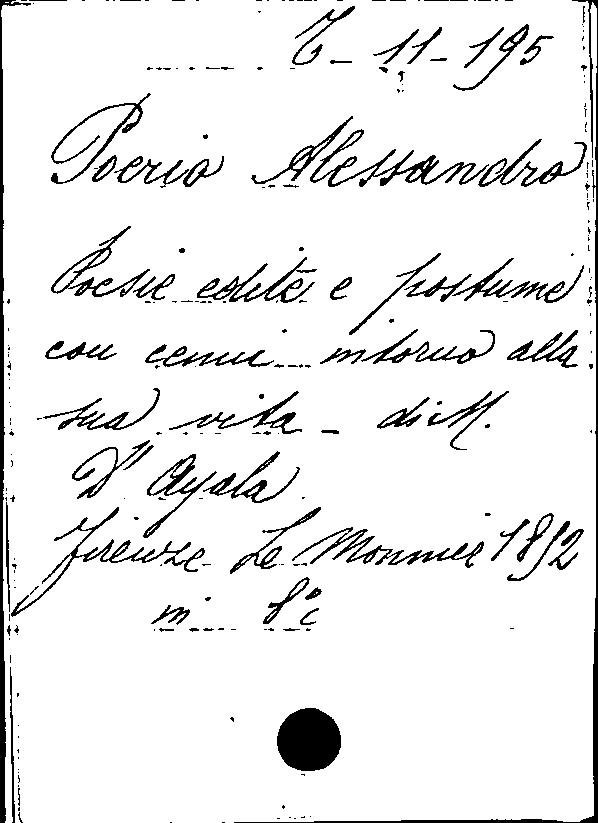 6-11-195
Poerio Alessandro
Poesie edite e postume
con cenni intorno alla
sua vita - di M.
D'Ayala
Firenze Le Monnier 1852
in 8°